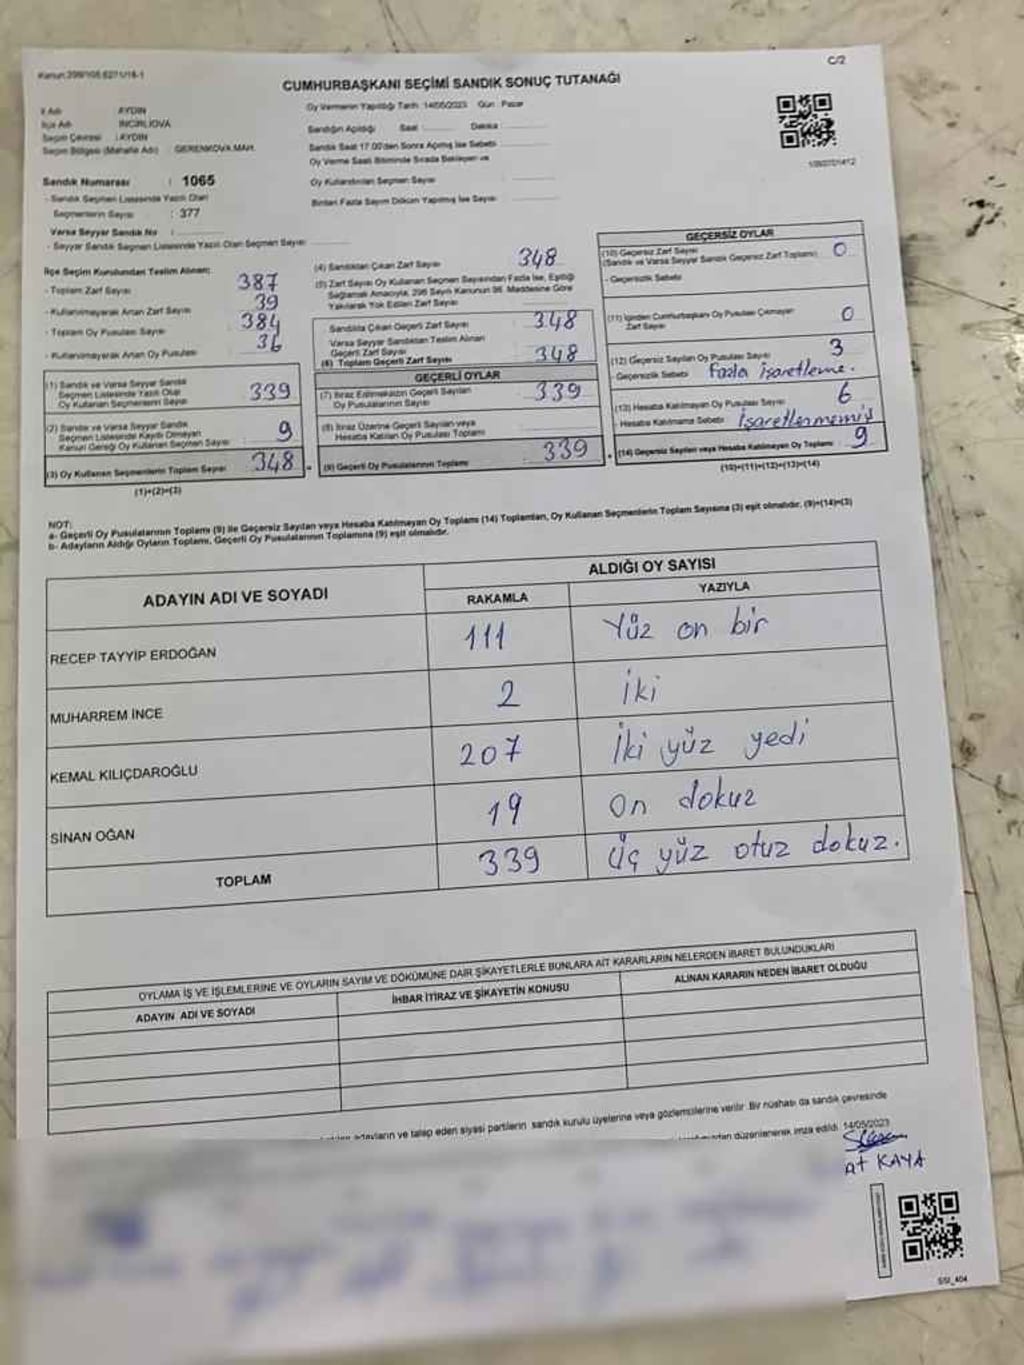 Kanun:298/105.6271/18-1
C/2
CUMHURBAŞKANI SEÇİMİ SANDIK SONUÇ TUTANAĞI
İl Adı AYDIN
İlçe Adı İNCİRLİOVA
Seçim Çevresi : AYDIN
Seçim Bölgesi (Mahalle Adı) GERENKOVA MAH.
Sandık Numarası : 1065
- Sandık Seçmen Listesinde Yazılı Olan
Seçmenlerin Sayısı : 377
Varsa Seyyar Sandık No :
- Seyyar Sandık Seçmen Listesinde Yazılı Olan Seçmen Sayısı
Oy Vermenin Yapıldığı Tarih :14/05/2023 Gün : Pazar
Sandığın Açıldığı Saat Dakika
Sandık Saat 17.00'den Sonra Açılmış İse Sebebi
Oy Verme Saati Bitiminde Sırada Bekleyen ve
Oy Kullandırılan Seçmen Sayısı
Birden Fazla Sayım Döküm Yapılmış İse Sayısı
İlçe Seçim Kurulundan Teslim Alınan;
- Toplam Zarf Sayısı 387
- Kullanılmayarak Artan Zarf Sayısı 39
- Toplam Oy Pusulası Sayısı 384
- Kullanılmayarak Artan Oy Pusulası 36
(1) Sandık ve Varsa Seyyar Sandık
Seçmen Listesinde Yazılı Olup
Oy Kullanan Seçmenlerin Sayısı 339
(2) Sandık ve Varsa Seyyar Sandık
Seçmen Listesinde Kayıtlı Olmayan
Kanun Gereği Oy Kullanan Seçmen Sayısı 9
(3) Oy Kullanan Seçmenlerin Toplam Sayısı 348
(1)+(2)=(3)
(4) Sandıktan Çıkan Zarf Sayısı 348
(5) Zarf Sayısı Oy Kullanan Seçmen Sayısından Fazla İse, Eşitliği
Sağlamak Amacıyla, 298 Sayılı Kanunun 98. Maddesine Göre
Yakılarak Yok Edilen Zarf Sayısı
Sandıkta Çıkan Geçerli Zarf Sayısı 348
Varsa Seyyar Sandıktan Teslim Alınan
Geçerli Zarf Sayısı
(6) Toplam Geçerli Zarf Sayısı 348
GEÇERLİ OYLAR
(7) İtiraz Edilmeksizin Geçerli Sayılan
Oy Pusulalarının Sayısı 339
(8) İtiraz Üzerine Geçerli Sayılan veya
Hesaba Katılan Oy Pusulası Toplamı
(9) Geçerli Oy Pusulalarının Toplamı 339
GEÇERSİZ OYLAR
(10) Geçersiz Zarf Sayısı
(Sandık ve Varsa Seyyar Sandık Geçersiz Zarf Toplamı) 0
- Geçersizlik Sebebi
(11) İçinden Cumhurbaşkanı Oy Pusulası Çıkmayan
Zarf Sayısı 0
(12) Geçersiz Sayılan Oy Pusulası Sayısı 3
- Geçersizlik Sebebi fazla işaretleme.
(13) Hesaba Katılmayan Oy Pusulası Sayısı 6
- Hesaba Katılmama Sebebi İşaretlenmemiş
(14) Geçersiz Sayılan veya Hesaba Katılmayan Oy Toplamı 9
(10)+(11)+(12)+(13)=(14)
NOT:
a- Geçerli Oy Pusulalarının Toplamı (9) ile Geçersiz Sayılan veya Hesaba Katılmayan Oy Toplamı (14) Toplamları, Oy Kullanan Seçmenlerin Toplam Sayısına (3) eşit olmalıdır. (9)+(14)=(3)
b- Adayların Aldığı Oyların Toplamı, Geçerli Oy Pusulalarının Toplamına (9) eşit olmalıdır.
ADAYIN ADI VE SOYADI ALDIĞI OY SAYISI
RAKAMLA YAZIYLA
RECEP TAYYİP ERDOĞAN 111 Yüz on bir
MUHARREM İNCE 2 iki
KEMAL KILIÇDAROĞLU 207 İki yüz yedi
SİNAN OĞAN 19 on dokuz
TOPLAM 339 Üç yüz otuz dokuz.
OYLAMA İŞ VE İŞLEMLERİNE VE OYLARIN SAYIM VE DÖKÜMÜNE DAİR ŞİKAYETLERLE BUNLARA AİT KARARLARIN NELERDEN İBARET BULUNDUKLARI
ADAYIN ADI VE SOYADI İHBAR İTİRAZ VE ŞİKAYETİN KONUSU ALINAN KARARIN NEDEN İBARET OLDUĞU
adayların ve talep eden siyasi partilerin sandık kurulu üyelerine veya gözlemcilerine verilir. Bir nüshası da sandık çevresinde
düzenlenerek imza edildi. 14/05/2023
at KAYA
SSI_404